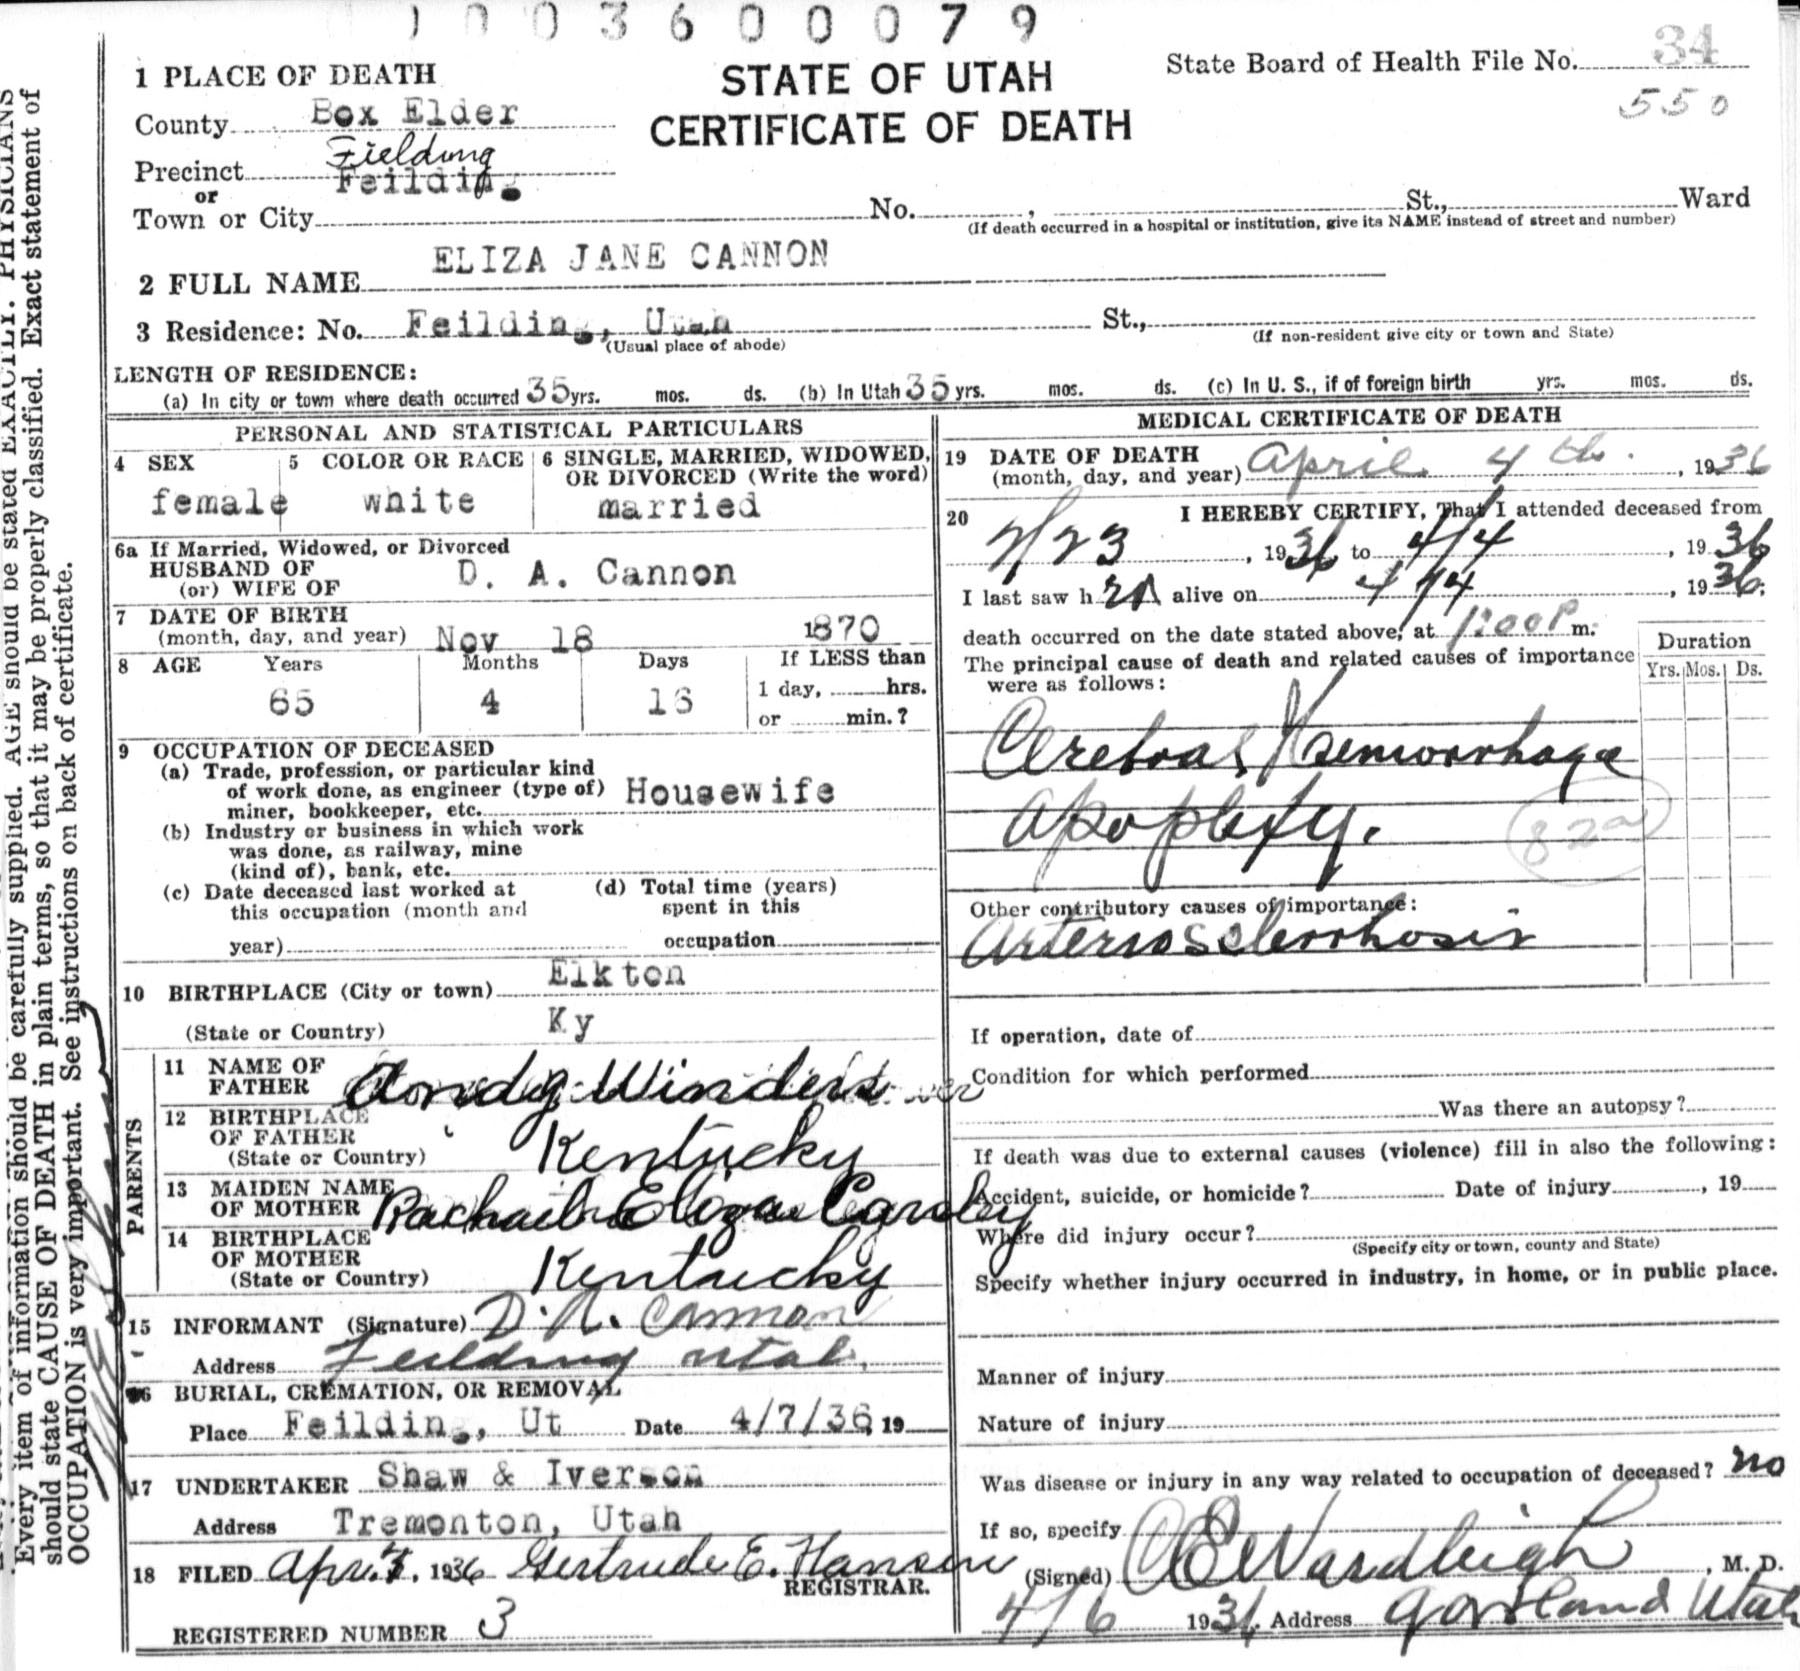 1 0 0 3 6 0 0 0 7 9
34
State Board of Health File No.
550
STATE OF UTAH
CERTIFICATE OF DEATH
1 PLACE OF DEATH
County Box Elder
Fielding
Precinct Feilding
or
Town or City No. , St., Ward
(If death occurred in a hospital or institution, give its NAME instead of street and number)
2 FULL NAME ELIZA JANE CANNON
3 Residence: No. Feilding, Utah St.,
(Usual place of abode) (If non-resident give city or town and State)
LENGTH OF RESIDENCE:
(a) In city or town where death occurred 35 yrs. mos. ds. (b) In Utah 35 yrs. mos. ds. (c) In U. S., if of foreign birth yrs. mos. ds.
PERSONAL AND STATISTICAL PARTICULARS
4 SEX 5 COLOR OR RACE 6 SINGLE, MARRIED, WIDOWED,
OR DIVORCED (Write the word)
female white married
6a If Married, Widowed, or Divorced
HUSBAND OF
(or) WIFE OF D. A. Cannon
7 DATE OF BIRTH
(month, day, and year) Nov 18 1870
8 AGE Years Months Days If LESS than
65 4 16 1 day, hrs.
or min.?
9 OCCUPATION OF DECEASED
(a) Trade, profession, or particular kind
of work done, as engineer (type of)
miner, bookkeeper, etc. Housewife
(b) Industry or business in which work
was done, as railway, mine
(kind of), bank, etc.
(c) Date deceased last worked at (d) Total time (years)
this occupation (month and spent in this
year) occupation
10 BIRTHPLACE (City or town) Elkton
(State or Country) Ky
PARENTS
11 NAME OF
FATHER Andy Winders
12 BIRTHPLACE
OF FATHER
(State or Country) Kentucky
13 MAIDEN NAME
OF MOTHER Rachael Eliza
14 BIRTHPLACE
OF MOTHER
(State or Country) Kentucky
15 INFORMANT (Signature) D. A. Cannon
Address Feilding Utah.
16 BURIAL, CREMATION, OR REMOVAL
Place Feilding, Ut Date 4/7/36 19
17 UNDERTAKER Shaw & Iverson
Address Tremonton, Utah
18 FILED Apr. 7, 1936 Gertrude E. Hansen
REGISTRAR.
REGISTERED NUMBER 3
MEDICAL CERTIFICATE OF DEATH
19 DATE OF DEATH
(month, day, and year) April 4th. , 1936
20 I HEREBY CERTIFY, That I attended deceased from
2/23 , 1936 to 4/4 , 1936
I last saw h er alive on 4/4 , 1936;
death occurred on the date stated above, at 1:00 P m.
The principal cause of death and related causes of importance
were as follows:
Duration
Yrs. Mos. Ds.
Cerebral Hemorrhage
Apoplexy.
82a
Other contributory causes of importance:
Arteriosclerrhosis
If operation, date of
Condition for which performed
Was there an autopsy?
If death was due to external causes (violence) fill in also the following:
Accident, suicide, or homicide? Date of injury , 19
Where did injury occur?
(Specify city or town, county and State)
Specify whether injury occurred in industry, in home, or in public place.
Manner of injury
Nature of injury
Was disease or injury in any way related to occupation of deceased? no
If so, specify
(Signed) , M. D.
4/6 1936. Address Garland Utah
Every item of information should be carefully supplied. AGE should be stated EXACTLY. PHYSICIANS
should state CAUSE OF DEATH in plain terms, so that it may be properly classified. Exact statement of
OCCUPATION is very important. See instructions on back of certificate.